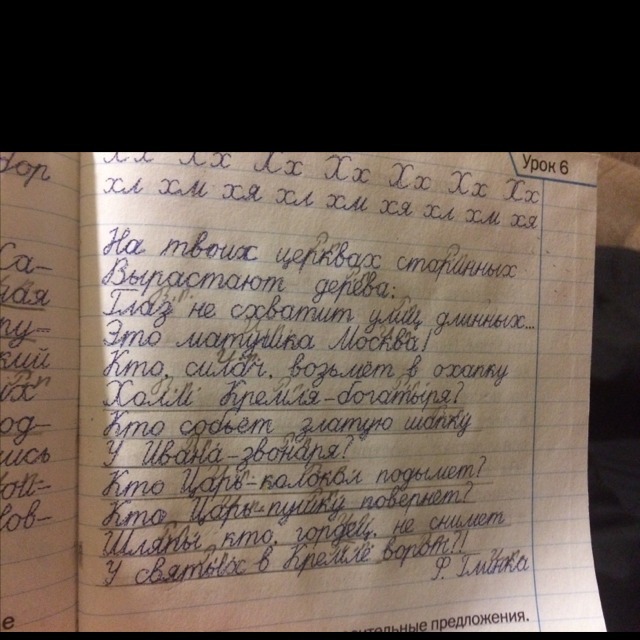 Урок 6
Хх Хх Хх Хх Хх Хх Хх
хл хм хя хл хм хя хл хм хя
На твоих церквах старинных
Вырастают дерева;
Глаз не схватит улиц длинных...
Это матушка Москва!
Кто, силач, возьмет в охапку
Холм Кремля-богатыря?
Кто собьет златую шапку
У Ивана-звонаря?
Кто Царь-колокол подымет?
Кто Царь-пушку повернет?
Шляпы кто, гордец, не снимет
У святых в Кремле ворот?!
Ф. Глинка
ительные предложения.